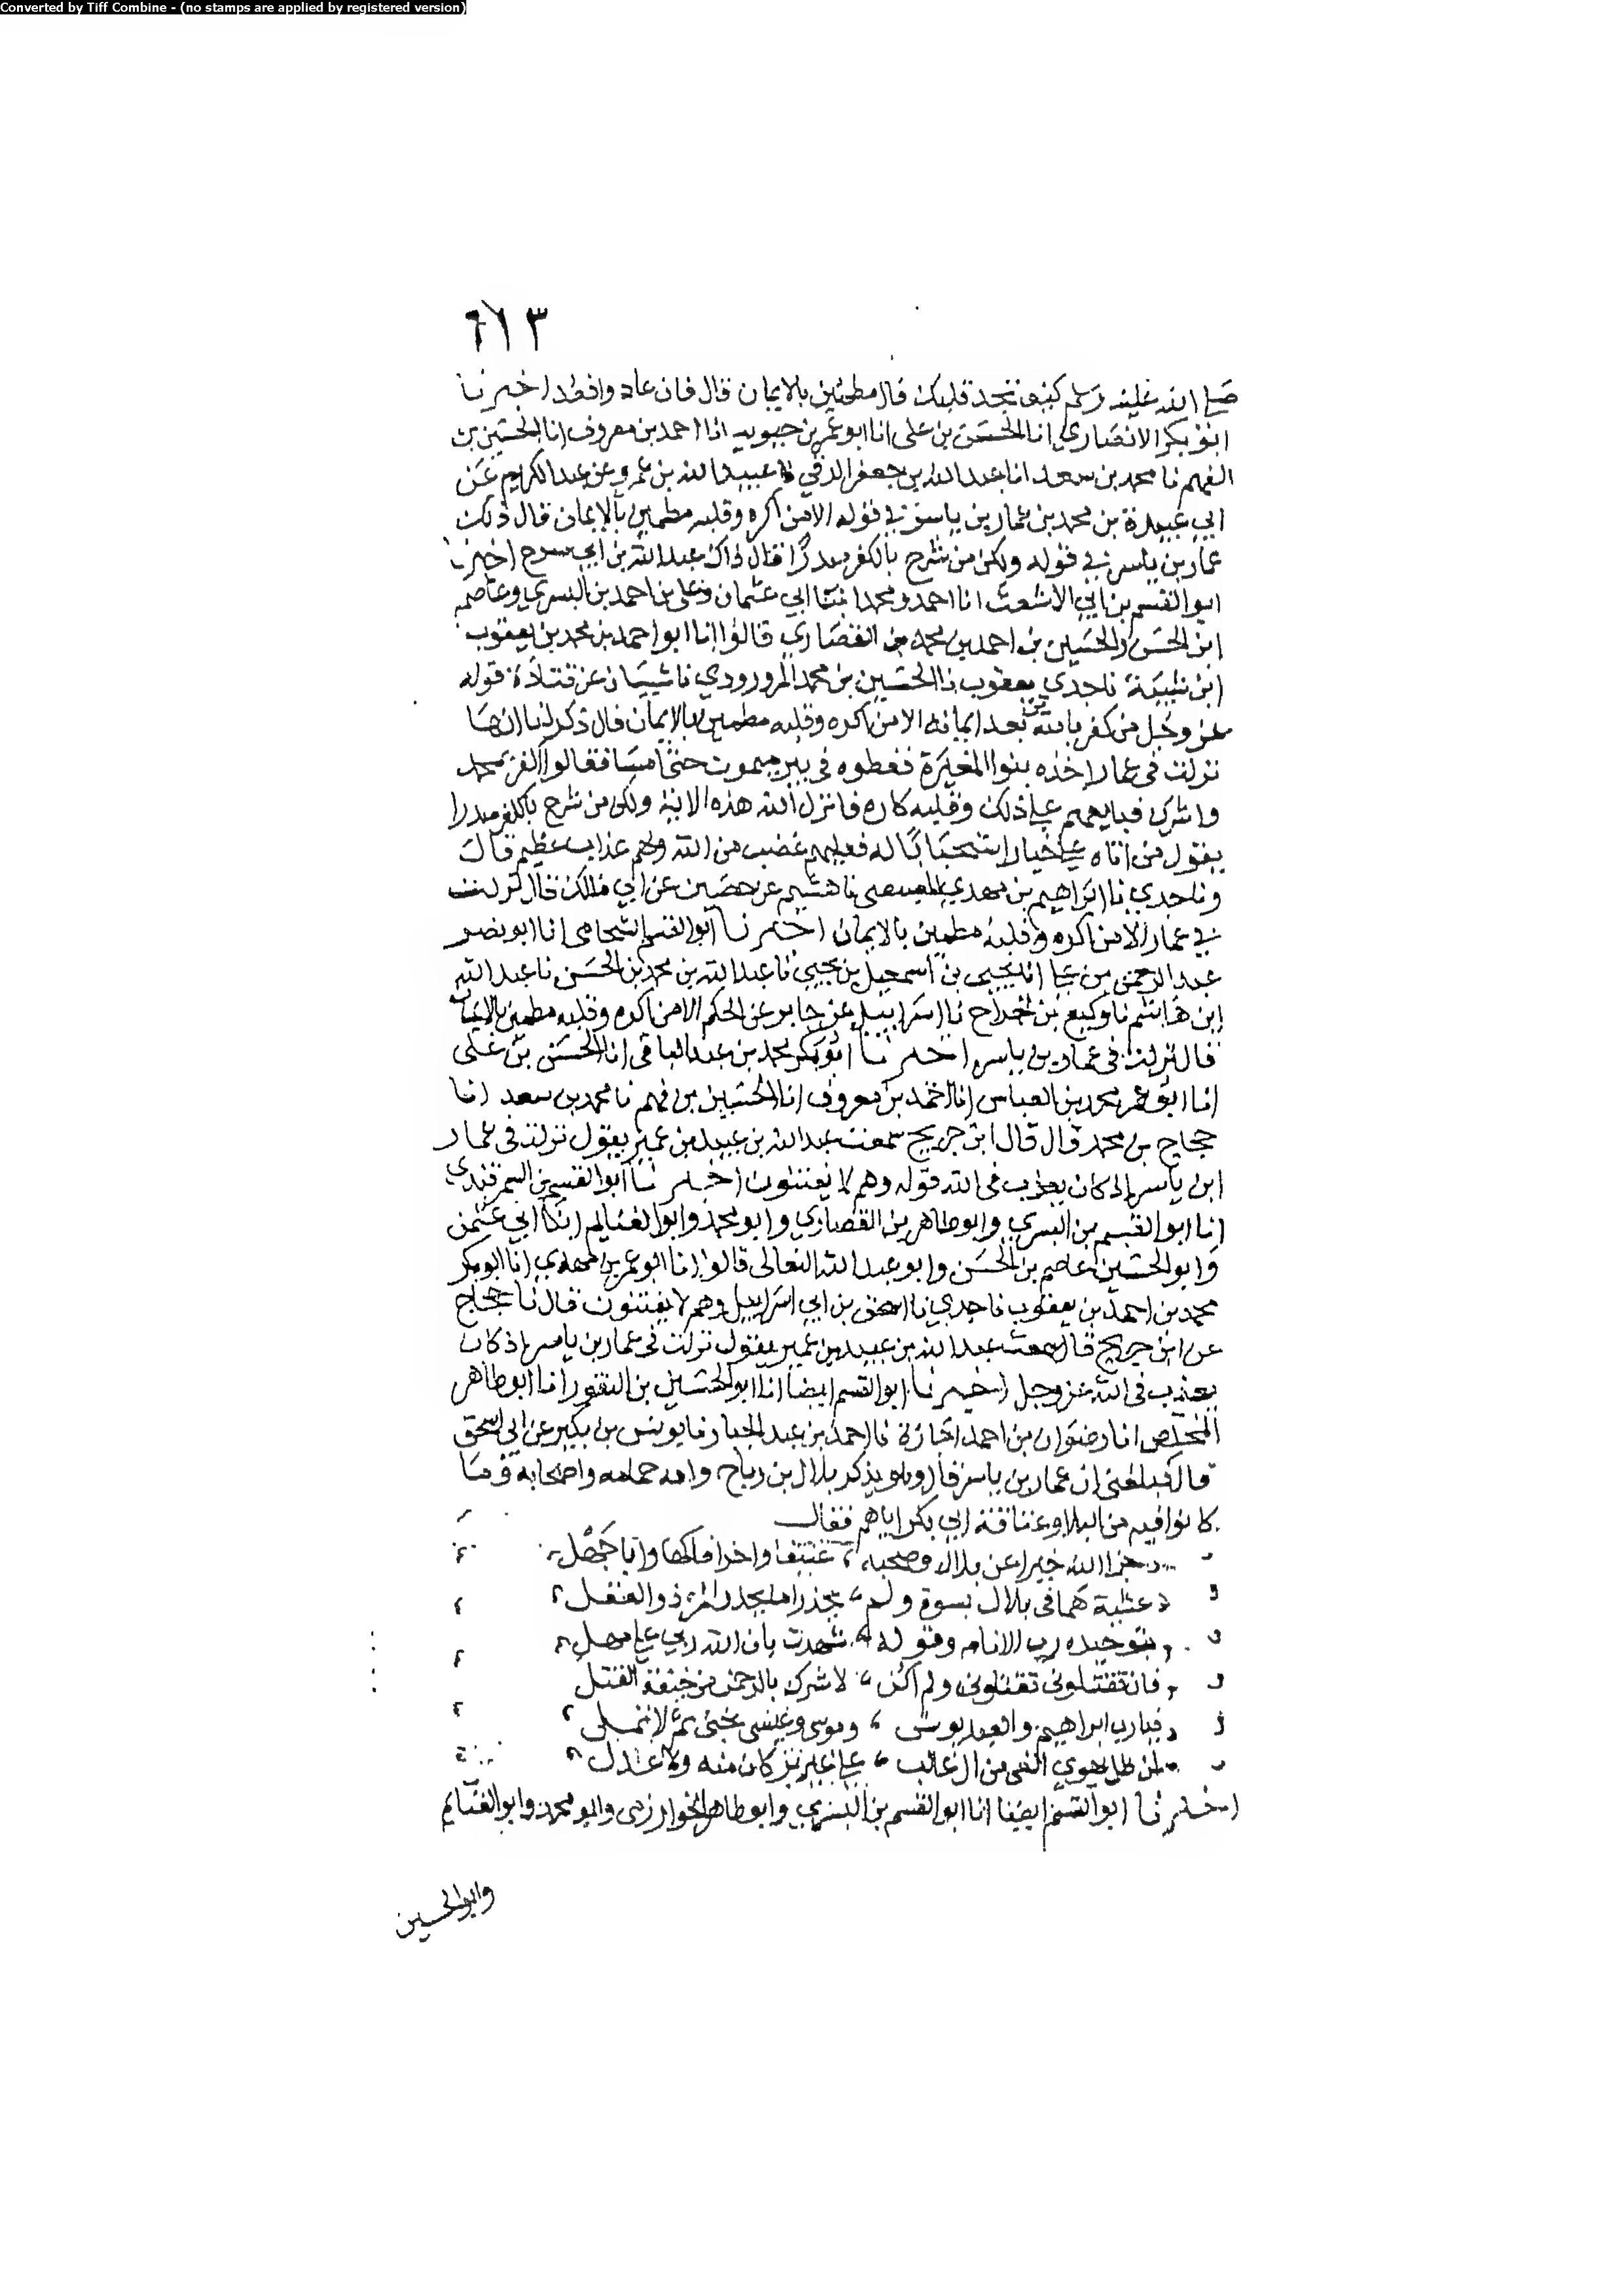 Converted by Tiff Combine - (no stamps are applied by registered version)
٦١٣
صلى الله عليه وسلم كيف تجد قلبك قال مطمئن بالايمان قال فان عادوا فعد اخبرنا
ابو بكر الانصاري انا الحسن بن علي انا ابو عمر بن حيويه انا احمد بن معروف انا الحسين بن
الفهم نا محمد بن سعد انا عبد الله بن جعفر الرقي نا عبيد الله بن عمرو عن عبد الكريم عن
ابي عبيدة بن محمد بن عمار بن ياسر في قوله الا من اكره وقلبه مطمين بالايمان قال ذلك
عمار بن ياسر في قوله ولكن من شرح بالكفر صدرا قال ذاك عبد الله بن ابي سرح اخبرنا
ابو القسم بن ابي الاشعث انا احمد ومحمد ابنا ابي عثمان وعلي بن احمد بن البسري وعاصم
ابن الحسن والحسين بن احمد بن محمد القصاري قالوا انا ابو احمد بن محمد بن يعقوب
ابن شيبة نا جدي يعقوب نا الحسين بن محمد المروروذي نا شيبان عن قتادة قوله
عز وجل من كفر بالله من بعد ايمانه الا من اكره وقلبه مطمين بالايمان قال ذكر لنا انها
نزلت في عمار اخذه بنوا المغيرة فغطوه في بير ميمون حتى امسا فقالوا اكفر بمحمد
واشرك فبايعهم على ذلك وقلبه كاره فانزل الله هذه الاية ولكن من شرح بالكفر صدرا
يقول من اتاه على خيار استحبابا له فعليهم غضب من الله ولهم عذاب عظيم قال
ونا جدي نا ابراهيم بن مهدي المصيصي نا هشيم عن حصين عن ابي مالك قال نزلت
في عمار الا من اكره وقلبه مطمين بالايمان اخبرنا ابو القسم الشحامي انا ابو نصر
عبد الرحمن بن علي انا يحيى بن اسمعيل بن يحيى نا عبد الله بن محمد بن الحسن نا عبد الله
ابن هاشم نا وكيع بن الجراح نا اسرائيل عن جابر عن الحكم الا من اكره وقلبه مطمين بالايمان
قال نزلت في عمار بن ياسر اخبرنا ابو بكر محمد بن عبد الباقي انا الحسن بن علي
انا ابو عمر محمد بن العباس انا احمد بن معروف انا الحسين بن فهم نا محمد بن سعد انا
حجاج بن محمد قال قال ابن جريج سمعت عبد الله بن عبيد بن عمير يقول نزلت في عمار
ابن ياسر اذ كان يعذب في الله قوله وهم لا يفتنون اخبرنا ابو القسم بن السمرقندي
انا ابو القسم بن البسري وابو طاهر بن القصاري وابو محمد وابو الغنايم ابنا ابي عثمن
وابو الحسين عاصم بن الحسن وابو عبد الله النعالي قالوا انا ابو عمر بن مهدي انا ابو بكر
محمد بن احمد بن يعقوب نا جدي نا اسحق بن ابي اسراييل وهم لا يفتنون قال نا حجاج
عن ابن جريج قال سمعت عبد الله بن عبيد بن عمير يقول نزلت في عمار بن ياسر اذ كان
يعذب في الله عز وجل اخبرنا ابو القسم ايضا انا ابو الحسين بن النقور انا ابو طاهر
المخلص انا رضوان بن احمد اجازة نا احمد بن عبد الجبار نا يونس بن بكير عن ابن اسحق
قال فبلغني ان عمار بن ياسر قال وهو يذكر بلال بن رباح وامه حمامه واصحابه وما
كانوا فيه من البلا وعتاقة ابي بكر اياهم فقال
جزا الله خيرا عن بلال وصحبه عتيقا واخزا فاكها وابا جهل
عشية هما في بلال بسوة ولم يحذرا ما يحذر المرء ذو العقل
بتوحيده رب الانام وقوله شهدت بان الله ربي على مهل
فان تقتلوني تقتلوني ولم اكن لاشرك بالرحمن من خيفة القتل
فيا رب ابراهيم والعبد يونس وموسى وعيسى نجني ثم لا تملي
لمن ظل يهوى الغي من ال غالب على غير بر كان منه ولا عدل
اخبرنا ابو القسم ايضا انا ابو القسم بن البسري وابو طاهر الخوارزمي وابو محمد وابو الغنايم
وابو الحسين